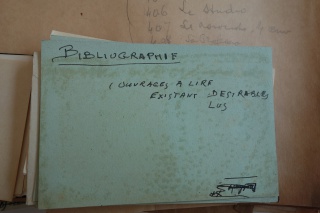 406 Le Studio
407 Le
BIBLIOGRAPHIE
( OUVRAGES A LIRE
EXISTANT DESIRABLES
LUS